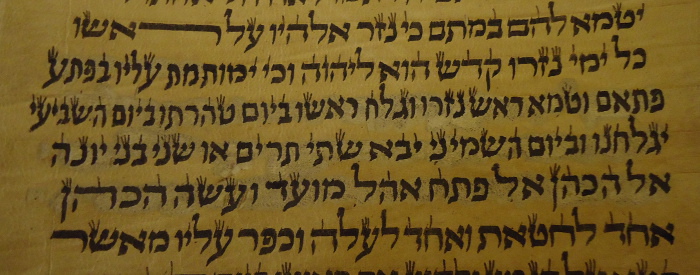 יטמא להם במתם כי נזר אלהיו על ראשו
כל ימי נזרו קדש הוא ליהוה וכי ימות מת עליו בפתע
פתאם וטמא ראש נזרו וגלח ראשו ביום טהרתו ביום השביעי
יגלחנו וביום השמיני יבא שתי תרים או שני בני יונה
אל הכהן אל פתח אהל מועד ועשה הכהן
אחד לחטאת ואחד לעלה וכפר עליו מאשר